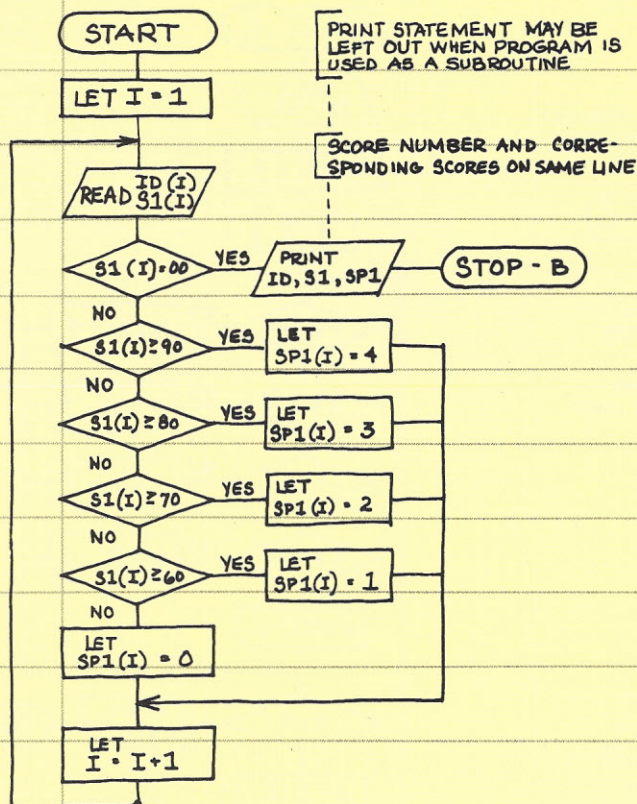 START
PRINT STATEMENT MAY BE
LEFT OUT WHEN PROGRAM IS
USED AS A SUBROUTINE
LET I = 1
SCORE NUMBER AND CORRE-
SPONDING SCORES ON SAME LINE
READ ID(I)
S1(I)
S1(I)=00
YES
PRINT
ID, S1, SP1
STOP - B
NO
S1(I)≥90
YES
LET
SP1(I) = 4
NO
S1(I)≥80
YES
LET
SP1(I) = 3
NO
S1(I)≥70
YES
LET
SP1(I) = 2
NO
S1(I)≥60
YES
LET
SP1(I) = 1
NO
LET
SP1(I) = 0
LET
I = I+1